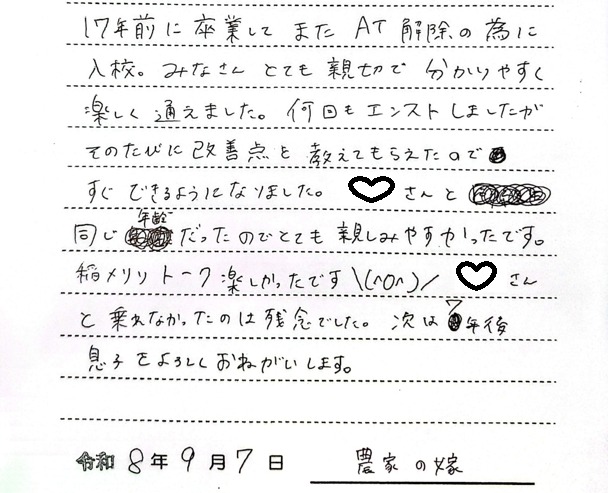 17年前に卒業して また AT 解除の為に
入校。みなさん とても 親切で 分かりやすく
楽しく 通えました。何回もエンストしましたが
そのたびに改善点を教えてもらえたので
すぐ できるようになりました。 さんと
年齢
同じ だったのでとても 親しみやすかったです。
稲メリリトーク楽しかったです \(^o^)/ さん
と 乗れなかったのは残念でした。次は 年後
息子をよろしくおねがいします。
令和 8年 9月 7日 農家の嫁